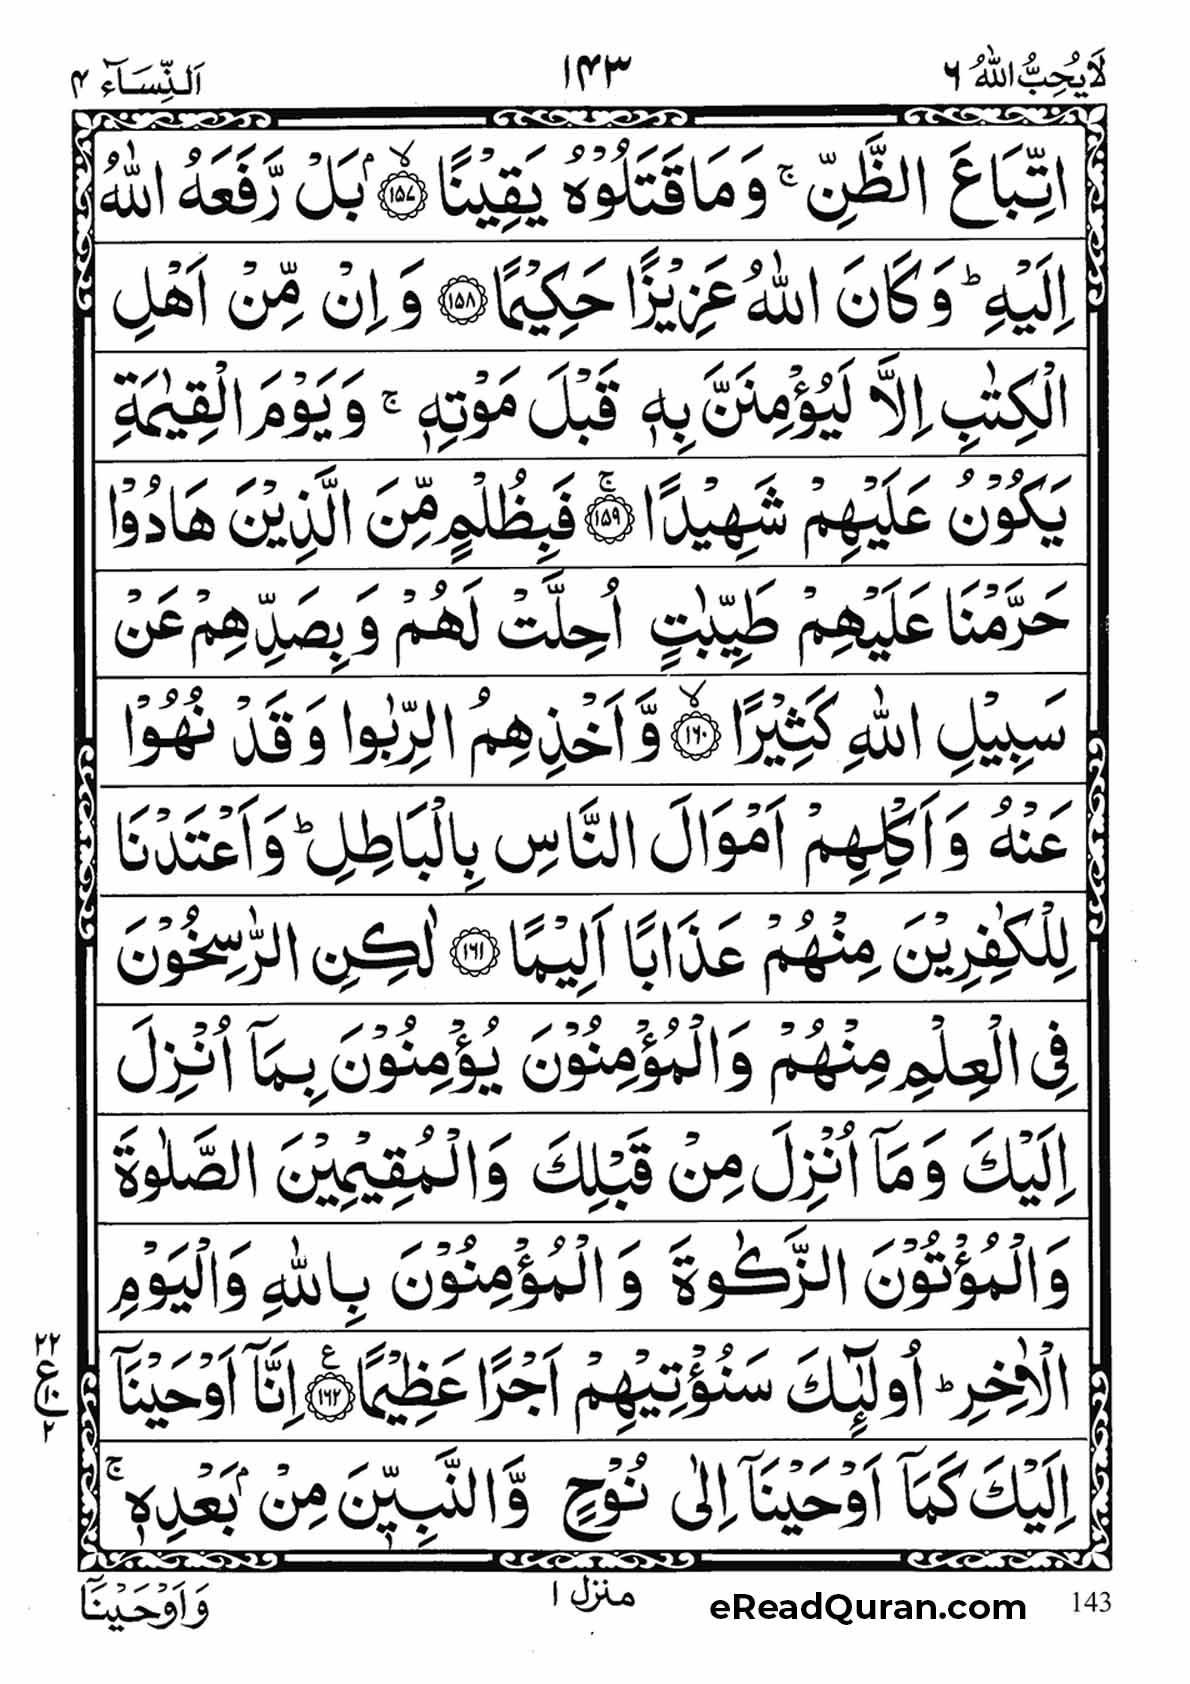 لَا يُحِبُّ اللّٰهُ ٦ ١٤٣ اَلنِّسَآء ٤
اتِّبَاعَ الظَّنِّ ۚ وَمَا قَتَلُوْهُ يَقِيْنًا ۙ﴿١٥٧﴾ بَلْ رَّفَعَهُ اللّٰهُ
اِلَيْهِ ؕ وَكَانَ اللّٰهُ عَزِيْزًا حَكِيْمًا ﴿١٥٨﴾ وَاِنْ مِّنْ اَهْلِ
الْكِتٰبِ اِلَّا لَيُؤْمِنَنَّ بِهٖ قَبْلَ مَوْتِهٖ ۚ وَيَوْمَ الْقِيٰمَةِ
يَكُوْنُ عَلَيْهِمْ شَهِيْدًا ۚ﴿١٥٩﴾ فَبِظُلْمٍ مِّنَ الَّذِيْنَ هَادُوْا
حَرَّمْنَا عَلَيْهِمْ طَيِّبٰتٍ اُحِلَّتْ لَهُمْ وَبِصَدِّهِمْ عَنْ
سَبِيْلِ اللّٰهِ كَثِيْرًا ۙ﴿١٦٠﴾ وَّاَخْذِهِمُ الرِّبٰوا وَقَدْ نُهُوْا
عَنْهُ وَاَكْلِهِمْ اَمْوَالَ النَّاسِ بِالْبَاطِلِ ؕ وَاَعْتَدْنَا
لِلْكٰفِرِيْنَ مِنْهُمْ عَذَابًا اَلِيْمًا ﴿١٦١﴾ لٰكِنِ الرّٰسِخُوْنَ
فِى الْعِلْمِ مِنْهُمْ وَالْمُؤْمِنُوْنَ يُؤْمِنُوْنَ بِمَآ اُنْزِلَ
اِلَيْكَ وَمَآ اُنْزِلَ مِنْ قَبْلِكَ وَالْمُقِيْمِيْنَ الصَّلٰوةَ
وَالْمُؤْتُوْنَ الزَّكٰوةَ وَالْمُؤْمِنُوْنَ بِاللّٰهِ وَالْيَوْمِ
الْاٰخِرِ ؕ اُولٰٓئِكَ سَنُؤْتِيْهِمْ اَجْرًا عَظِيْمًا ﴿١٦٢﴾ع اِنَّآ اَوْحَيْنَآ
اِلَيْكَ كَمَآ اَوْحَيْنَآ اِلٰى نُوْحٍ وَّالنَّبِيّٖنَ مِنْۢ بَعْدِهٖ ۚ
٢٢
ع
٢
143 eReadQuran.com منزل ١ وَاَوْحَيْنَآ